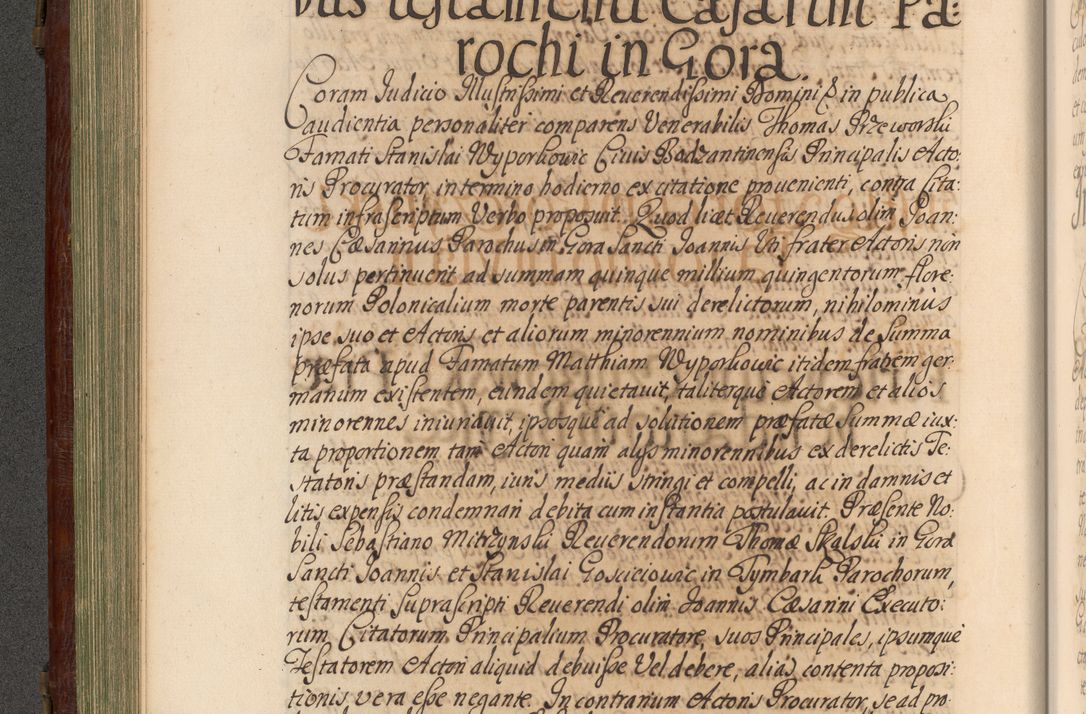 bus testamenti Cæsarini Pa:
rochi in Gora.
Coram Judicio Illustrissimi et Reuerendissimi Domini &c in publica
audientia personaliter comparens Venerabilis Thomas Przeworski
Famati Stanislai Wyporkowic Ciuis Bodzantinensis Principalis Acto:
ris Procurator, in termino hodierno ex citatione prouenienti, contra Cita:
tum infrascriptum Verbo proposuit. Quod licet Reuerendus olim Joan:
nes Cæsarinus Parochus in Gora Sancti Joannis Uti frater Actoris non
solus pertinuerit ad summam quinque millium quingentorum flore:
norum Polonicalium morte parentis sui derelictorum, nihilominus
ipse suo et Actoris et aliorum minorennium nominibus de Summa
præfata apud Famatum Matthiam Wyporkowic itidem fratrem ger
manum existentem, eundem quietauit, taliterque Actorem et alios
minorennes iniuriauit, ipsosque ad solutionem præfatæ Summæ iux:
ta proportionem tam Actori quam alijs minorennibus ex derelictis Te:
statoris præstandam, iuris medijs stringi et compelli, ac in damnis et
litis expensis condemnari debita cum instantia postulauit. Præsente No:
bili Sebastiano Mitrzynski Reuerendorum Thomæ Skalski in Gora
Sancti Joannis et Stanislai Gosciciowic in Tymbark Parochorum,
testamenti suprascripti Reuerendi olim Joannis Cæsarini Executo:
rum Citatorum Principalium Procuratore, suos Principales, ipsumque
Testatorem Actori aliquid debuisse Vel debere, alias contenta proposi:
tionis vera esse negante. In contrarium Actoris Procurator, se ad pro